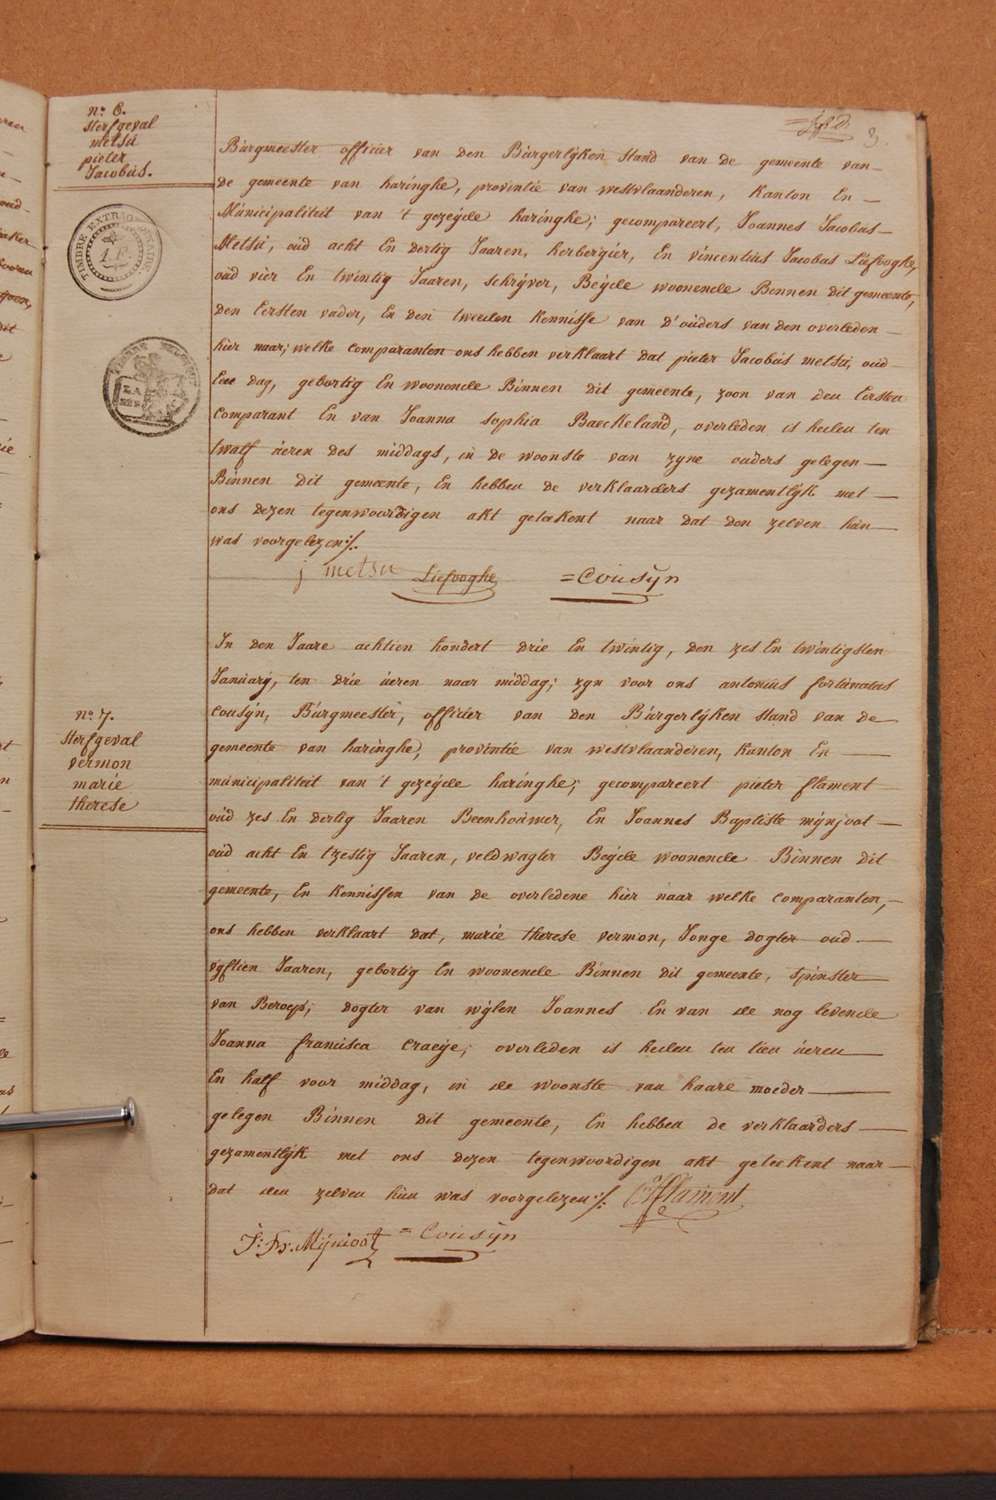 3
n.r 6.
Sterfgeval
metsú
pieter
Jacobús.
TIMBRE EXTRAORDINAIRE
Búrgmeester officier van den Búrgerlýken Stand van de gemeente van
de gemeente van haringhe, provintie van westvlaanderen, kanton En
Múnicipaliteit van 't gezeýde haringhe; gecompareert, Joannes Jacobús
Metsú, oúd acht En dertig Jaaren, herbergier, En vincentiús Jacobus Liefooghe,
oúd vier En twintig Jaaren, schrýver, Beýde woonende Binnen dit gemeente,
den Eersten vader, En den tweeden Kennisse van d'oúders van den overleden
hier naar; welke comparanten ons hebben verklaart dat pieter Jacobús metsú, oud
Eene dag, gebortig En woonende Binnen dit gemeente, zoon van den Eersten
Comparant En van Joanna Sophia Baeckeland, overleden is heden ten
twalf úeren des middags, in de woonste van zyne ouders gelegen
Binnen dit gemeente, En hebben de verklaarders gezamentlýk met
ons dezen tegenwoordigen akt geteekent naar dat den zelven hún
was voorgelezen:/.
j metsu Liefooghe =Coúsÿn
n.r 7.
Sterfgeval
vermon
marie
therese
In den Jaare achtien hondert drie En twintig, den zes En twintigsten
Januarÿ, ten drie úeren naar middag; zyn voor ons antoniús fortúnatús
Coúsÿn, Búrgmeester, officier van den Búrgerlýken Stand van de
gemeente van haringhe, provintie van westvlaanderen, kanton En
múnicipaliteit van 't gezeýde haringhe; gecompareert pieter flament
oúd zes En dertig Jaaren Beenhoúwer, En Joannes Baptiste mÿnjoot
oúd acht En tzestig Jaaren, veldwagter Beýde woonende Binnen dit
gemeente, En Kennissen van de overledene hier naar welke comparanten,
ons hebben verklaart dat, marie therese vermon, Jonge dogter oud
vÿftien Jaaren, gebortig En woonende Binnen dit gemeente, Spinster
van Beroep; dogter van wÿlen Joannes En van de nog levende
Joanna francisca Craeÿe; overleden is heden ten tien úeren
En half voor middag, in de woonste van haare moeder
gelegen Binnen dit gemeente, En hebben de verklaarders
gezamentlýk met ons dezen tegenwoordigen akt geteekent naar
dat den zelven hún was voorgelezen:/. Flament
= Coúsÿn